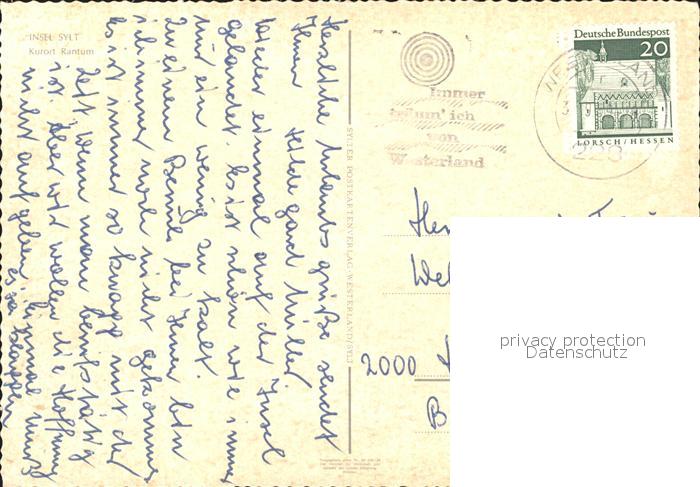 INSEL SYLT
Kurort Rantum
Herzliche Urlaubsgrüße sendet
Ihnen Hildegard Müller
Wieder einmal auf der Insel
gelandet. Es ist schön wie immer
nur ein wenig zu kalt.
Zu einem Besuch bei Ihnen bin
ich immer noch nicht gekommen
es ist immer so knapp mit der
Zeit wenn man berufstätig
ist. Aber wir wollen die Hoffnung
nicht aufgeben, einmal muß
es ja klappen.
SYLTER POSTKARTENVERLAG · WESTERLAND/SYLT
Immer
träum' ich
von
Westerland
Deutsche Bundespost
20
LORSCH/HESSEN
2000
B
privacy protection
Datenschutz